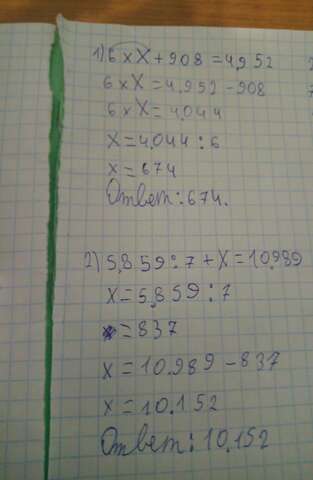 1) 6 x X + 908 = 4.952
6 x X = 4.952 - 908
6 x X = 4.044
X = 4.044 : 6
X = 674
Ответ: 674.
2) 5.859 : 7 + X = 10.989
X = 5.859 : 7
= 837
X = 10.989 - 837
X = 10.152
Ответ: 10.152